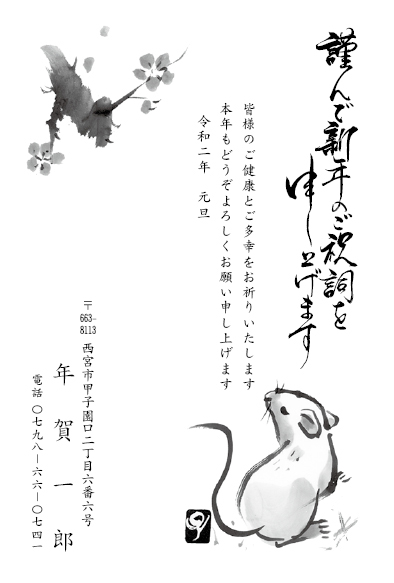 謹んで新年のご祝詞を
申し上げます
皆様のご健康とご多幸をお祈りいたします
本年もどうぞよろしくお願い申し上げます
令和二年 元旦
〒663-8113
西宮市甲子園口二丁目六番六号
年賀一郎
電話 〇七九八ー六六ー〇七四一